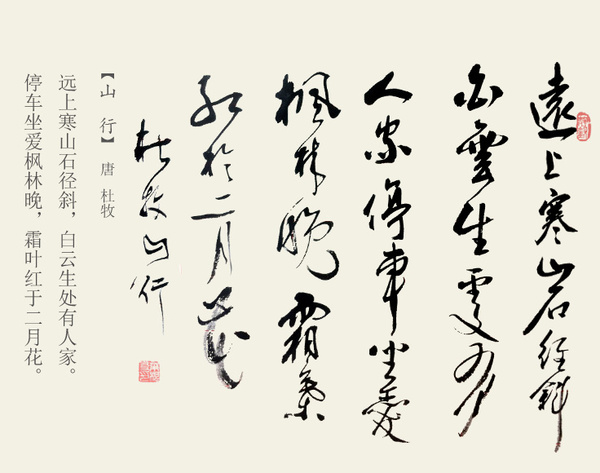 遠上寒山石徑斜
白雲生處有
人家停車坐愛
楓林晚霜葉
紅於二月花
杜牧山行
【山 行】 唐 杜牧
远上寒山石径斜，白云生处有人家。
停车坐爱枫林晚，霜叶红于二月花。